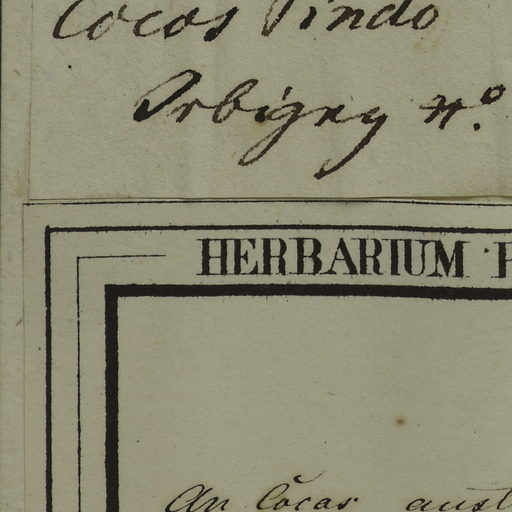 Cocos Pindo
Orbigny n.º
HERBARIUM
An Cocos aust